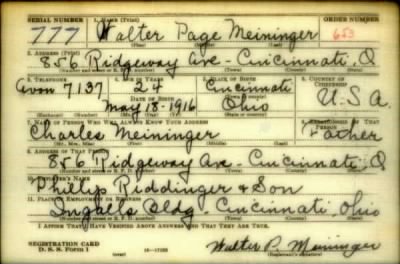 SERIAL NUMBER 1. NAME (Print) ORDER NUMBER
777 Walter Page Meininger 653
(First) (Middle) (Last)
2. ADDRESS (Print)
856 Ridgeway Ave - Cincinnati, O
3. TELEPHONE 4. AGE IN YEARS 5. PLACE OF BIRTH 6. COUNTRY OF CITIZENSHIP
Avon 7137 24 Cincinnati
DATE OF BIRTH
May 18-1916 Ohio U.S.A.
7. NAME OF PERSON WHO WILL ALWAYS KNOW YOUR ADDRESS 8. RELATIONSHIP OF THAT PERSON
Charles Meininger Father
9. ADDRESS OF THAT PERSON
856 Ridgeway Ave - Cincinnati, O
10. EMPLOYER'S NAME
Phillip Riddinger & Son
11. PLACE OF EMPLOYMENT OR BUSINESS
Ingalls Bldg - Cincinnati, Ohio
I AFFIRM THAT I HAVE VERIFIED ABOVE ANSWERS AND THAT THEY ARE TRUE.
REGISTRATION CARD
D. S. S. FORM 1 Walter P. Meininger
(over) (Registrant's signature)